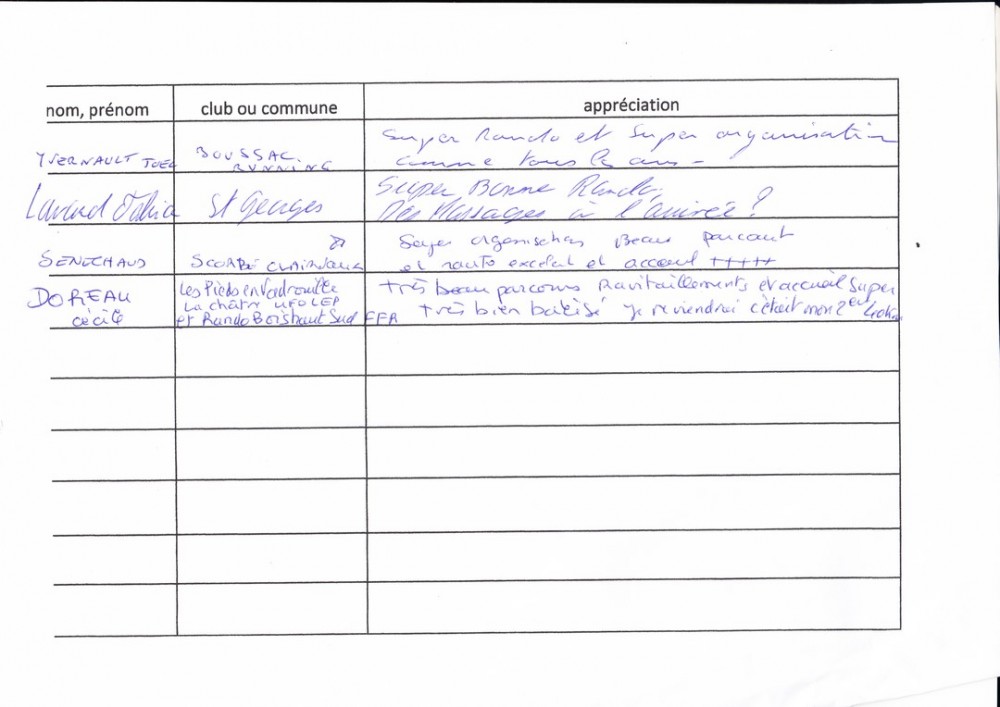 nom, prénom
club ou commune
appréciation
YVERNAULT JOEL
BOUSSAC
RUNNING
Super Rando et Super organisation
comme tous les ans -
Lavaud
St Georges
Super Bonne Rando,
Des Massages à l'arrivée ?
SENECHAUD
SCORBÉ CLAIRVAUX
Super organisation Beau parcourt
et et accueil +++++
DOREAU
Cécile
Les Pieds en Vadrouille
La châtre UFOLEP
et Rando Boishaut Sud FFR
très beau parcours Ravitaillements et accueil Super
très bien balisé je reviendrai c'était mon 2